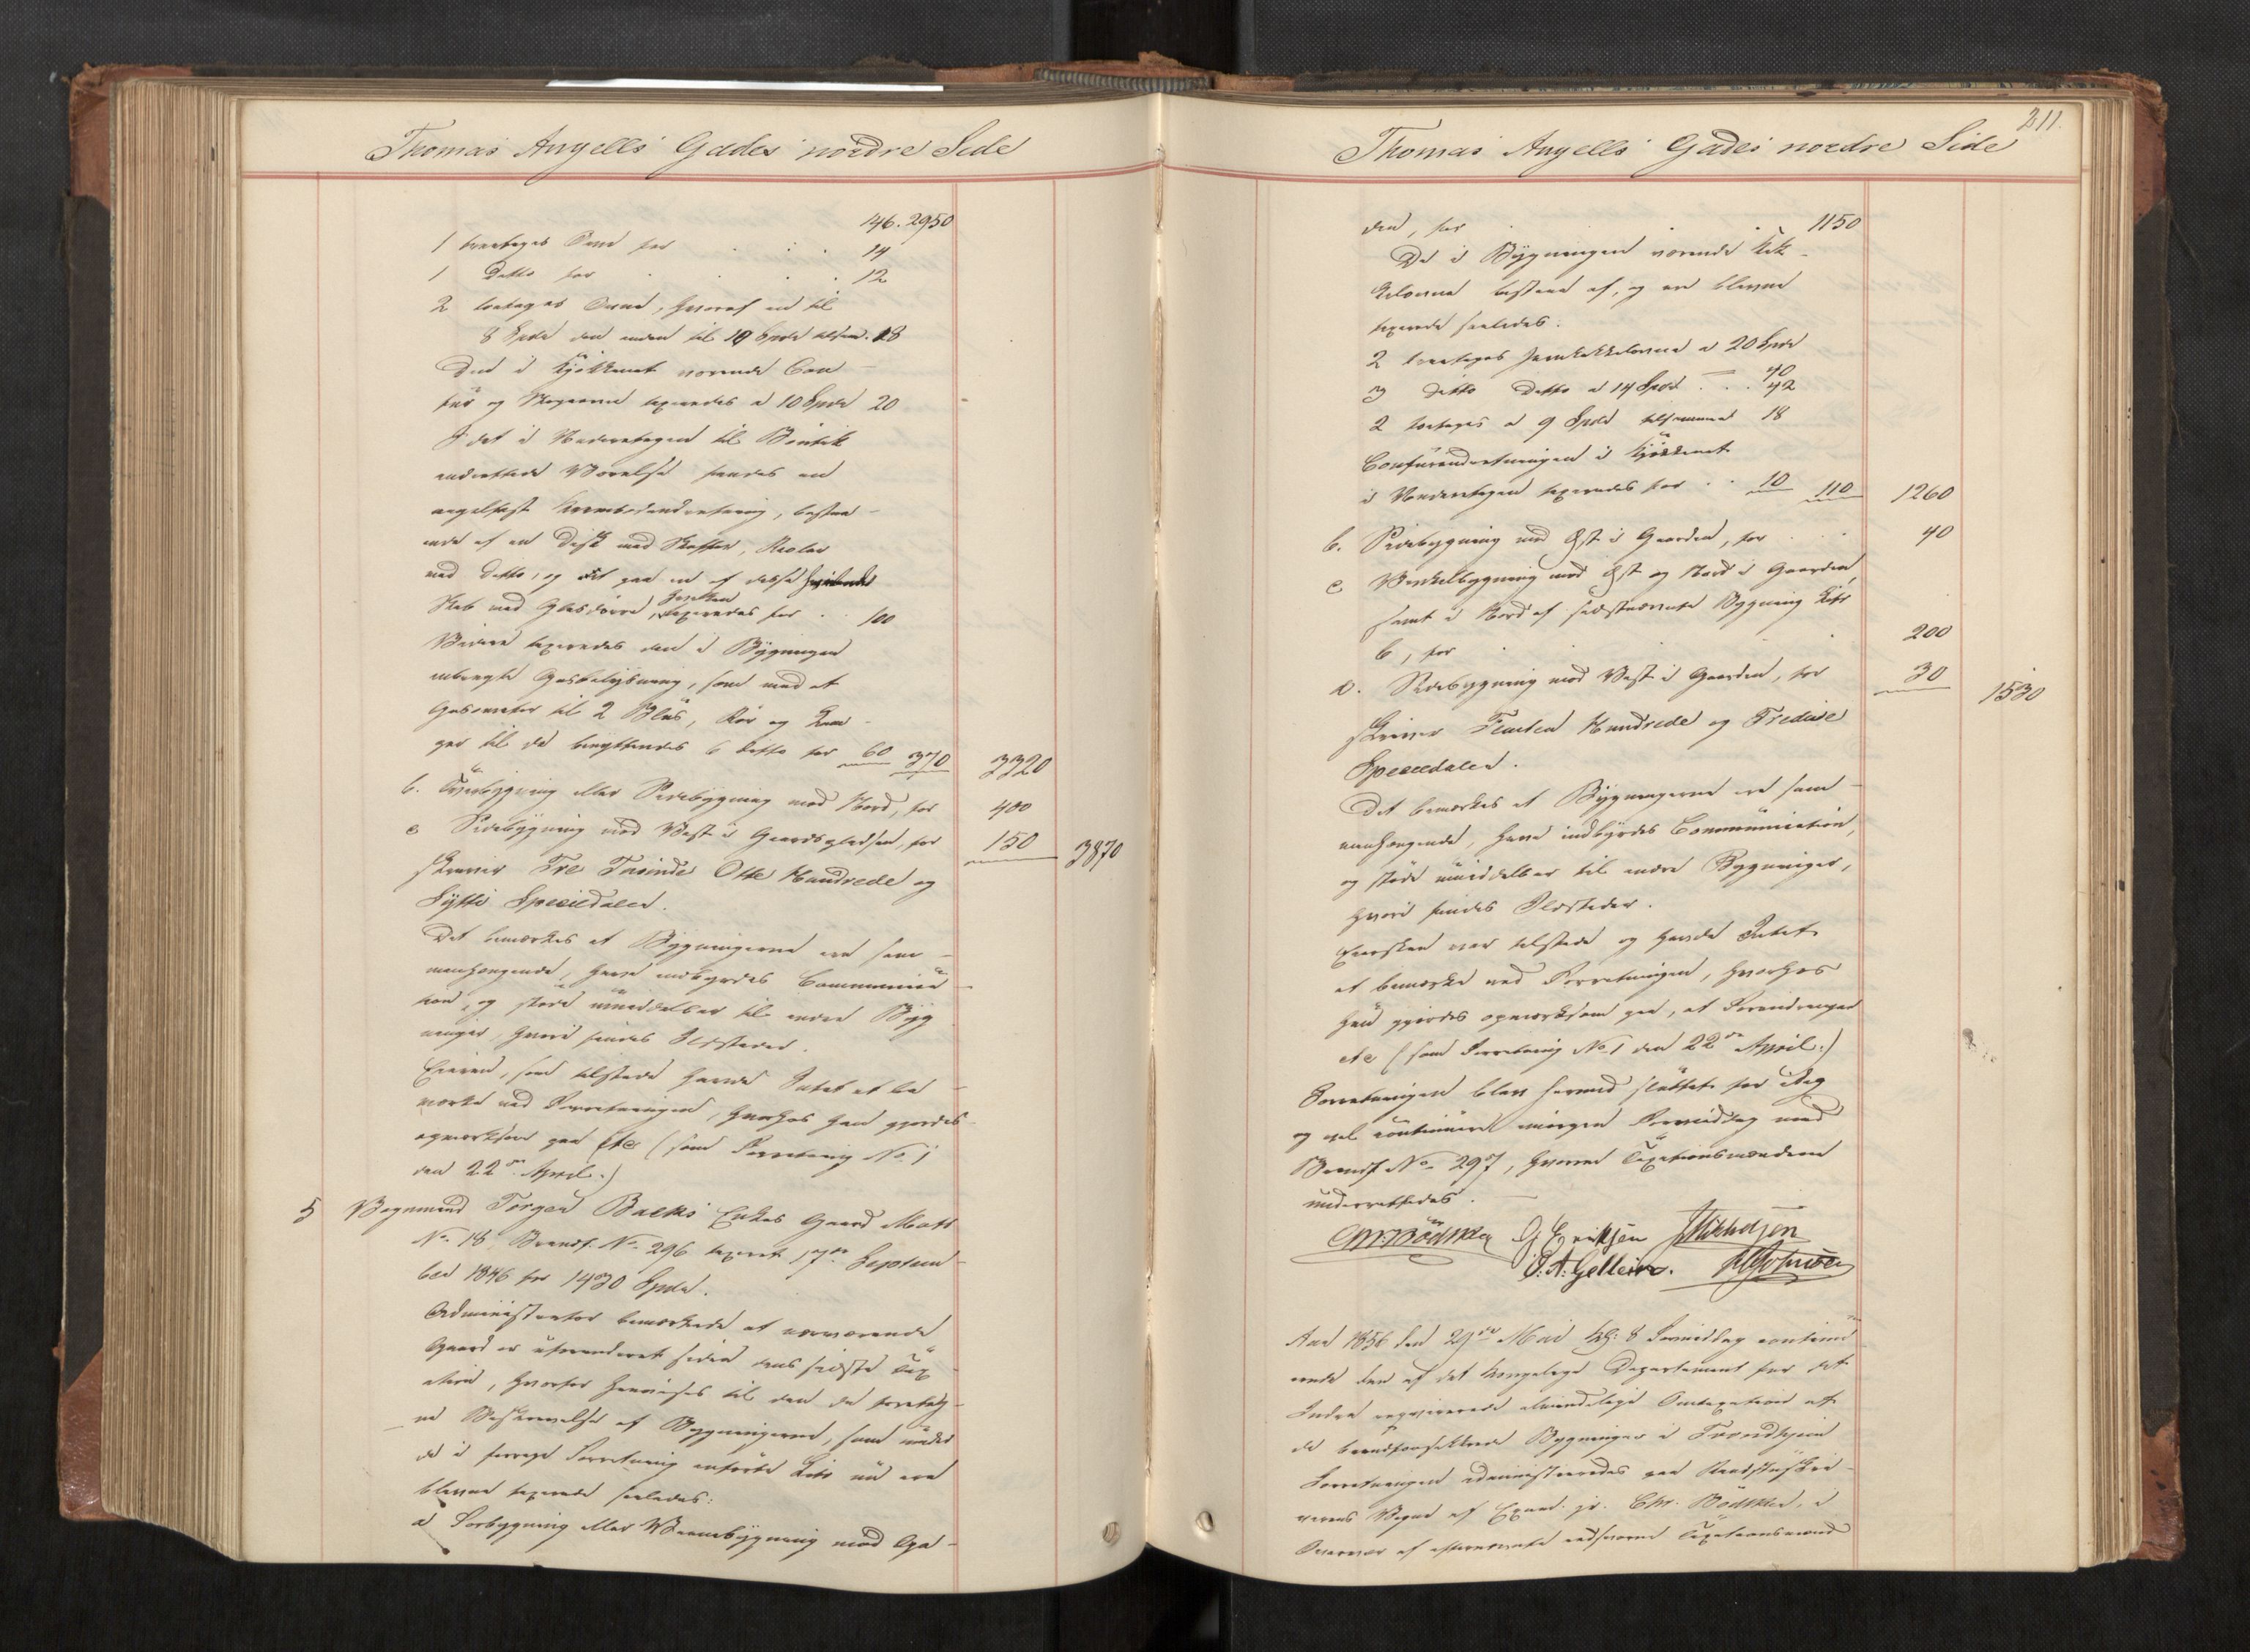 Thomas Angells Gades nordre Side
146. 2950
1 treetages Ovn for . . . 14
1 Ditto for . . . 12
2 toetages Ovne, hvoraf en til
8 Spd den anden til 10 Spd tilsam. 18
Den i Kjøkkenet værende Com-
für og Stegeovn taxeredes a 10 Spd 20
I det i Underetagen til Boutik
indrettede Værelse findes en
nagelfast Krambodindretning, bestaa-
ende af en Disk med Skuffer, Reoler
med Ditto, og et paa en af disse
Skab med Glasdøre, taxeredes for . . 100
Videre taxeredes den i Bygningen
anbragte Gasbelysning, som med et
Gasometer til 2 Blus, Rør og
til de benyttendes 6 Ditto for 60 370 3320
b. Tverbygning eller Sidebygning mod Nord, for 400
c Sidebygning mod Vest i Gaardspladsen, for 150 3870
skriver Tre Tusinde Otte Hundrede og
Sytti Speciedaler.
Det bemærkes at Bygningerne ere sam-
menhængende, have indbyrdes Communica-
tion, og støde umiddelbar til andre Byg
ninger, hvori findes Ildsteder.
Eieren, som tilstede havde Intet at be-
mærke ved Forretningen, hvorhos han gjordes
opmærksom paa etc (som Forretning No 1
den 22de April.)
5 Vognmand Jørgen Backs Enkes Gaard Matr
No 18, Brandf. No 296 taxeret 17de Septem-
ber 1846 for 1430 Spd.
Administrator bemærkede at nærværende
Gaard er uforandret siden dens sidste Tax-
ation, hvorfor henvises til den da foretag-
ne Beskrivelse af Bygningerne, som under
de i forrige Forretning anførte Litr nu ere
blevne taxerede saaledes:
a Forbygning eller Vaanebygning mod Ga-
211.
Thomas Angells Gades nordre Side
den, for . . . 1150
De i Bygningen værende Kak-
kelovne bestaae af, og ere blevne
taxerede saaledes:
2 treetages Jernkakkelovne a 20 Spd 40
3 ditto Ditto a 14 Spd . . . 42
2 toetages a 9 Spd tilsammen 18
Comfürindretningen i Kjøkkenet
i Underetagen taxeredes for . . 10 110 1260
b. Sidebygning mod Øst i Gaarden, for . . . 40
c Vinkelbygning mod Øst og Nord i Gaarden,
samt i Nord af sidstnævnte Bygning Litr
b, for . . . 200
d. Sidebygning mod Vest i Gaarden, for 30 1530
skriver Femten Hundrede og Tredive
Speciedaler.
Det bemærkes at Bygningerne ere sam-
menhængende, have indbyrdes Communication,
og støde umiddelbar til andre Bygninger,
hvori findes Ildsteder.
Eiersken var tilstede og havde Intet
at bemærke ved Forretningen, hvorhos
hun gjordes opmærksom paa, at Forandringer
etc (som Forretning No 1 den 22de April.)
Forretningen blev hermed sluttet for idag
og vil continuere imorgen Formiddag med
Brandf. No 297, hvorom Taxationsmændene
underrettedes.
Chr. Bödtker G. Eriksen
J. A. Gellein.
Aar 1856 den 29de Mai Kl: 8 Formiddag continu-
erede den af det kongelige Departement for det
Indre requirerede almindelige Omtaxation af
de brandforsikkrede Bygninger i Trondhjem
Forretningen administreredes paa Raadstuskri-
verens Vegne af Exam. jr. Chr. Bödtker, i
Overvær af efternævnte edsvorne Taxationsmænd